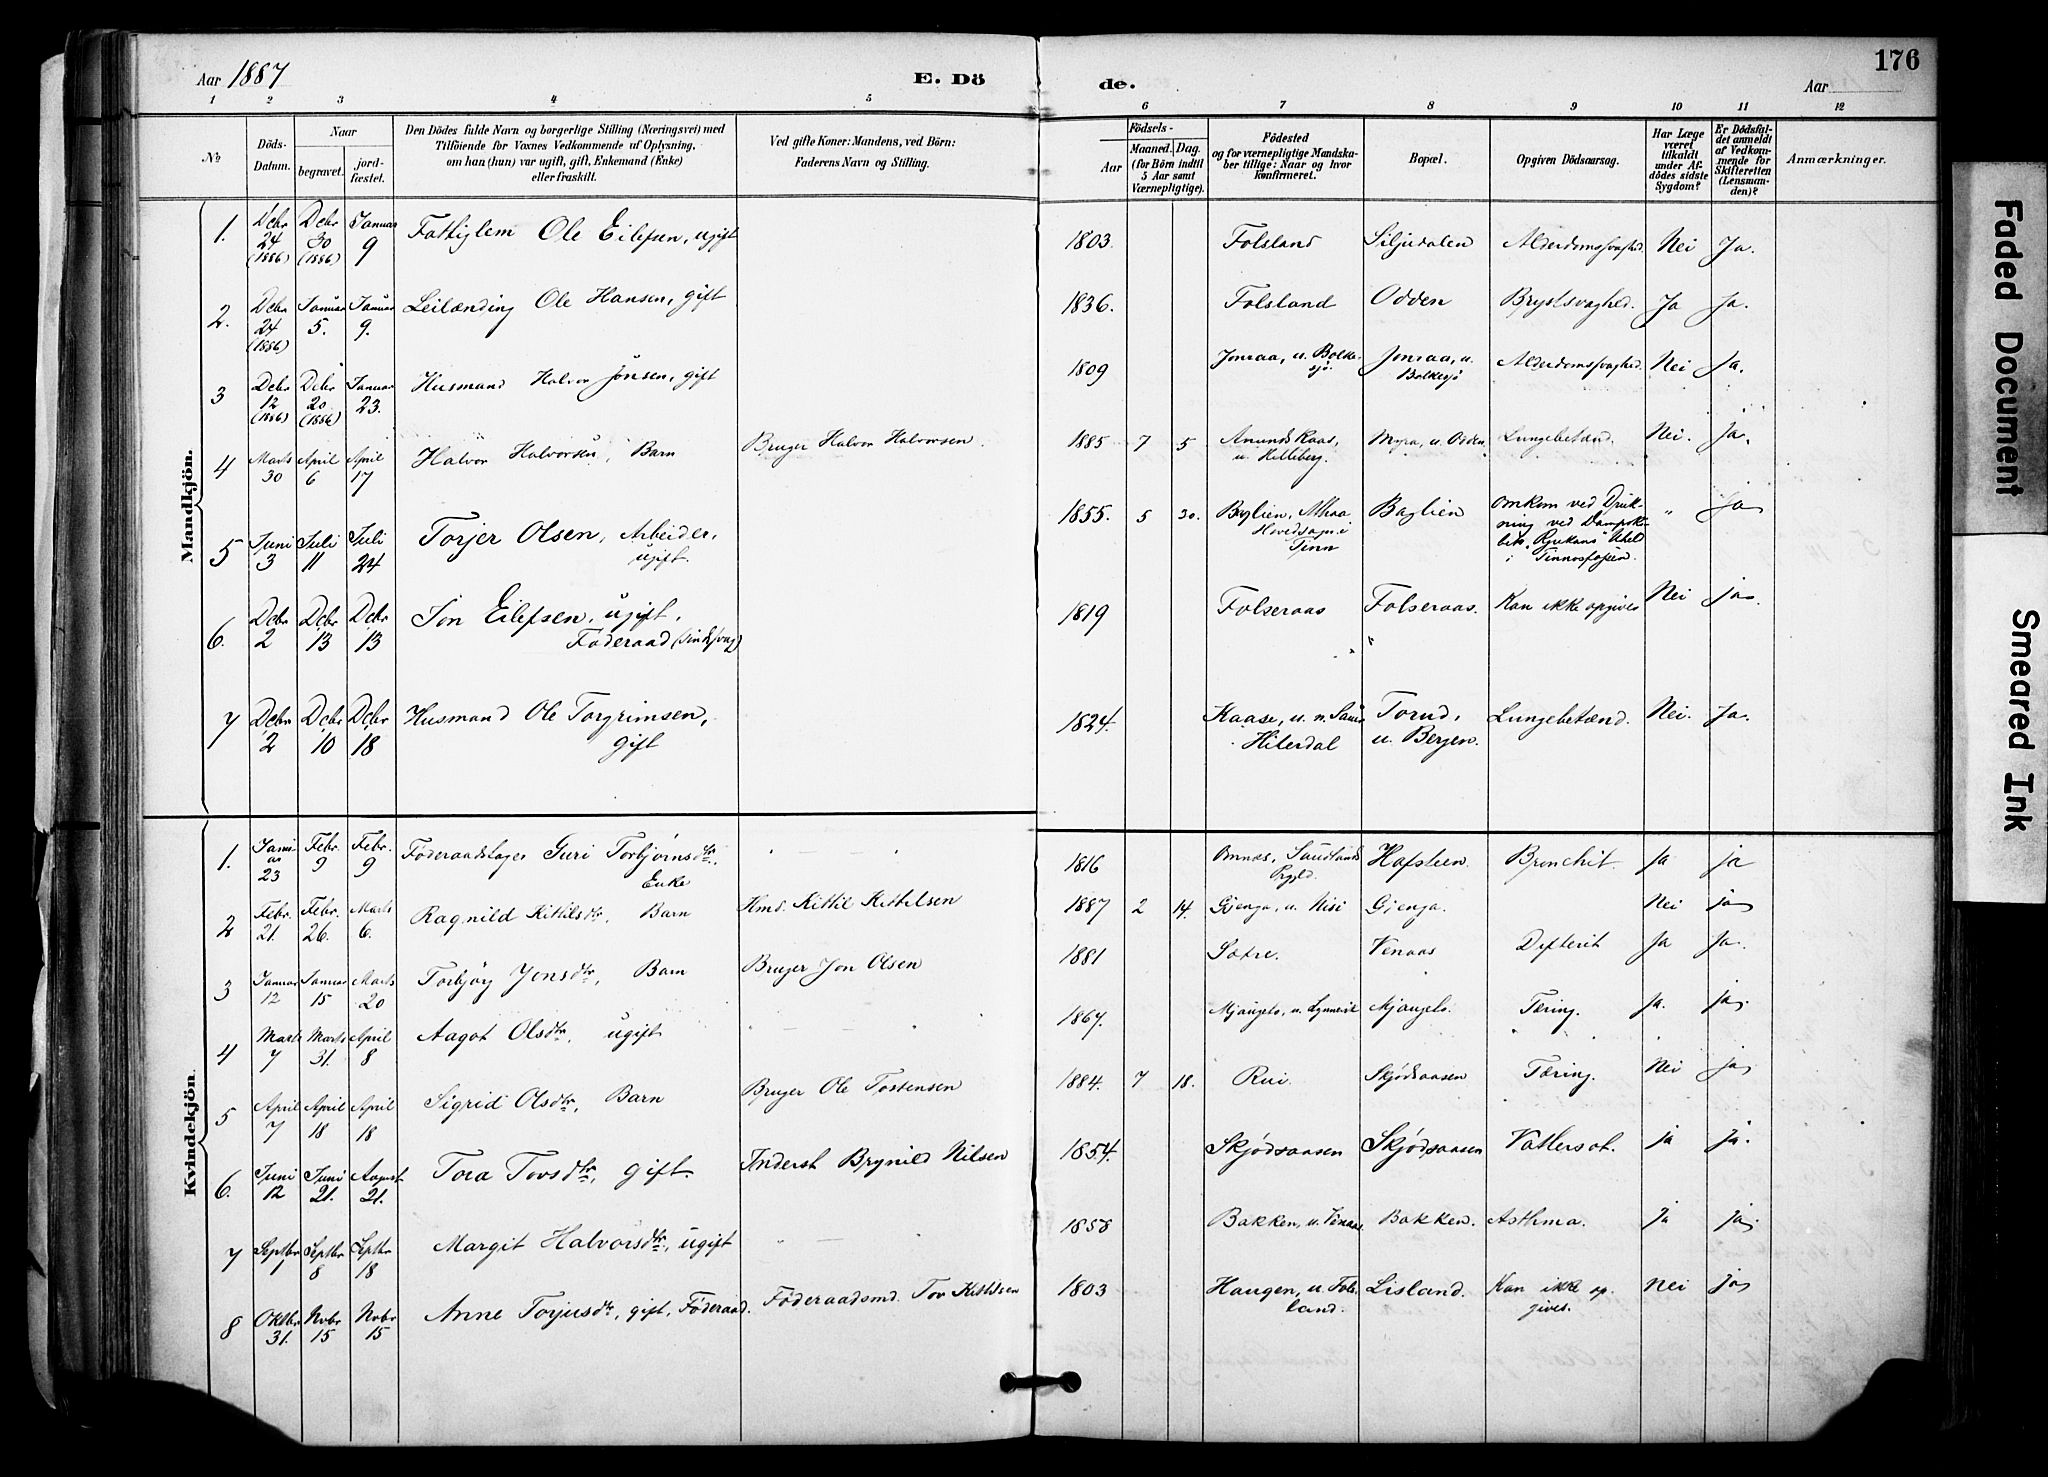 Aar 1887
E. Dö
de.
Aar
176
1 2 3 4 5 6 7 8 9 10 11 12
No
Döds-Datum.
Naar
begravet.
jord-fæstet.
Den Dödes fulde Navn og borgerlige Stilling (Næringsvei) med
Tilföiende for Voxnes Vedkommende af Oplysning,
om han (hun) var ugift, gift, Enkemand (Enke)
eller fraskilt.
Ved gifte Koner: Mandens, ved Börn:
Faderens Navn og Stilling.
Födsels-
Aar
Maaned. Dag.
(for Börn indtil
5 Aar samt
Værnepligtige).
Födested
og for værnepligtige Mandska-
ber tillige: Naar og hvor
konfirmeret.
Bopæl.
Opgiven Dödsaarsag.
Har Læge
været
tilkaldt
under Af-
dödes sidste
Sygdom?
Er Dödsfal-
det anmeldt
af Vedkom-
mende for
Skifteretten
(Lensman-
den)?
Anmærkninger.
Mandkjön.
1. Dcbr 24 (1886) Dcbr 30 (1886) Januar 9 Fattiglem Ole Eilefsen, ugift 1803 Folsland Siljudalen Alderdomssvaghed. Nei Ja.
2. Dcbr 24 (1886) Januar 5. Januar 9. Leilænding Ole Hansen, gift 1836. Folsland Odden Brystsvaghed. Ja Ja.
3 Dcbr 12 (1886) Dcbr 20 (1886) Januar 23. Husmand Halvor Jonsen, gift 1809 Jonraa, u. Bolkesjö. Jonraa, u. Bolkesjö Alderdomssvaghed. Nei Ja.
4 Marts 30 April 6 April 17 Halvor Halvorsen, Barn Bruger Halvor Halvorsen. 1885 7 5 Amunds Kaas, u. Helleberg. Myra, u. Odden. Lungebetænd. Nei. Ja.
5 Juni 3 Juli 11 Juli 24 Torjer Olsen, Arbeider, ugift. 1855. 5 30. Baglien, Hovedsogn i Tinn Baglien omkom ved Druk-
ning ved Dampsk-
bets "Rjukans" Uheld
i Tinnosfossen. " ja
6. Dcbr 2 Dcbr 13 Dcbr 13 Jon Eilefsen, ugift, Föderaad (sindssvag) 1819 Folseraas Folseraas. Kan ikke opgives Nei ja.
" "
7 Dcbr 2 Dcbr 10 Dcbr 18 Husmand Ole Torgrimsen, gift 1824. Kaase, u. n. Hiterdal Torud, u. Bergen. Lungebetænd. Nei. Ja.
Kvindekjön.
1. Januar 23 Febr. 9 Febr. 9 Föderaadstager Guri Torbjörnsdtr. Enke " — " 1816 Omnæs, Saudlands bygd. Hafsteen. Bronchit. ja ja
2 Febr. 21. Febr. 26. Marts 6. Ragnild Kittilsdtr, Barn Hmd. Kittil Kittilsen 1887 2 14. Gjenga, u. Nisi Gjenga. Nei ja
3 Januar 12 Januar 15 Marts 20 Torbjör Jonsdtr, Barn Bruger Jon Olsen 1881 Sætre. Venaas Difterit Ja Ja.
4 Marts 7 Marts 31. April 8 Aagot Olsdtr, ugift " — " 1867. Mjaugeto, u. Mjaugeto. Tæring. ja. ja.
5 April 7 April 18 April 18 Sigrid Olsdtr, Barn Bruger Ole Tostensen 1884. 7 18. Rui. Skjödsaasen Tæring. Nei ja
6. Juni 12 Juni 21. August 21. Tora Tovsdtr, gift. Inderst Brynild Nilsen 1854. Skjödsaasen Skjödsaasen Vattersot. ja ja.
7 Septbr 1 Septbr 8 Septbr 18 Margit Halvorsdtr, ugift " — " 1858 Bakken, u. Venaas Bakken. Asthma. ja ja.
8 Oktbr 31. Nvbr 15 Nvbr 15 Anne Torjusdtr, gift, Föderaad. Föderaadsmd. Tov Kittilsen 1803 Haugen, u. Folsland. Lisland. Kan ikke opgives. Nei ja
Faded Document
Smeared Ink